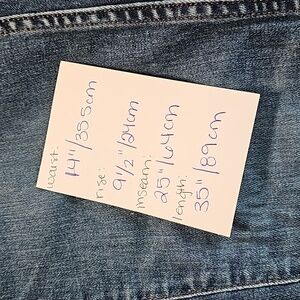 waist:
14"/35.5cm
rise:
9 1/2"/24cm
inseam:
25"/64cm
length:
35"/89cm